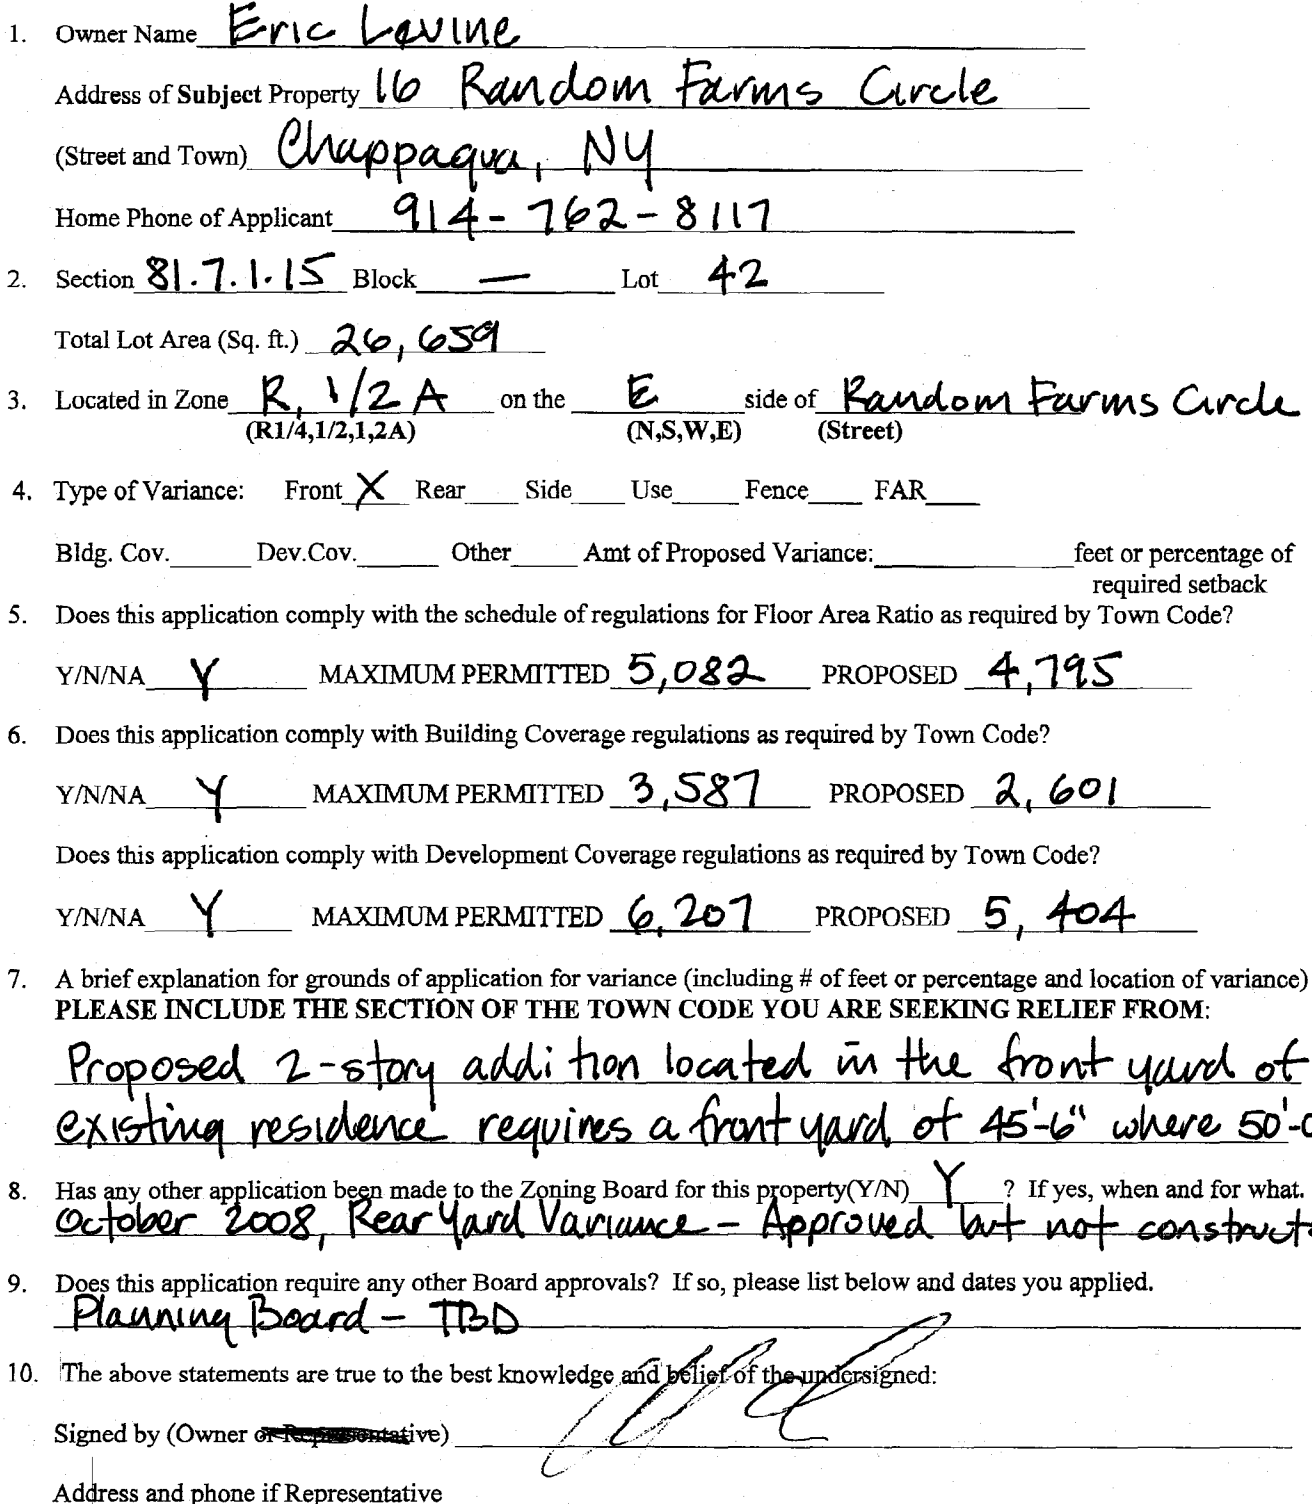 1. Owner Name Eric Lavine
Address of Subject Property 16 Random Farms Circle
(Street and Town) Chappaqua, NY
Home Phone of Applicant 914-762-8117
2. Section 81.7.1.15 Block — Lot 42
Total Lot Area (Sq. ft.) 26,659
3. Located in Zone R, 1/2 A on the E side of Random Farms Circle
(R1/4,1/2,1,2A) (N,S,W,E) (Street)
4. Type of Variance: Front X Rear Side Use Fence FAR
Bldg. Cov. Dev.Cov. Other Amt of Proposed Variance: feet or percentage of
required setback
5. Does this application comply with the schedule of regulations for Floor Area Ratio as required by Town Code?
Y/N/NA Y MAXIMUM PERMITTED 5,082 PROPOSED 4,795
6. Does this application comply with Building Coverage regulations as required by Town Code?
Y/N/NA Y MAXIMUM PERMITTED 3,587 PROPOSED 2,601
Does this application comply with Development Coverage regulations as required by Town Code?
Y/N/NA Y MAXIMUM PERMITTED 6,207 PROPOSED 5,404
7. A brief explanation for grounds of application for variance (including # of feet or percentage and location of variance)
PLEASE INCLUDE THE SECTION OF THE TOWN CODE YOU ARE SEEKING RELIEF FROM:
Proposed 2-story addition located in the front yard of
existing residence requires a front yard of 45'-6" where 50'-0
8. Has any other application been made to the Zoning Board for this property(Y/N) Y ? If yes, when and for what.
October 2008, Rear Yard Variance - Approved but not construct
9. Does this application require any other Board approvals? If so, please list below and dates you applied.
Planning Board - TBD
10. The above statements are true to the best knowledge and belief of the undersigned:
Signed by (Owner or Representative)
Address and phone if Representative